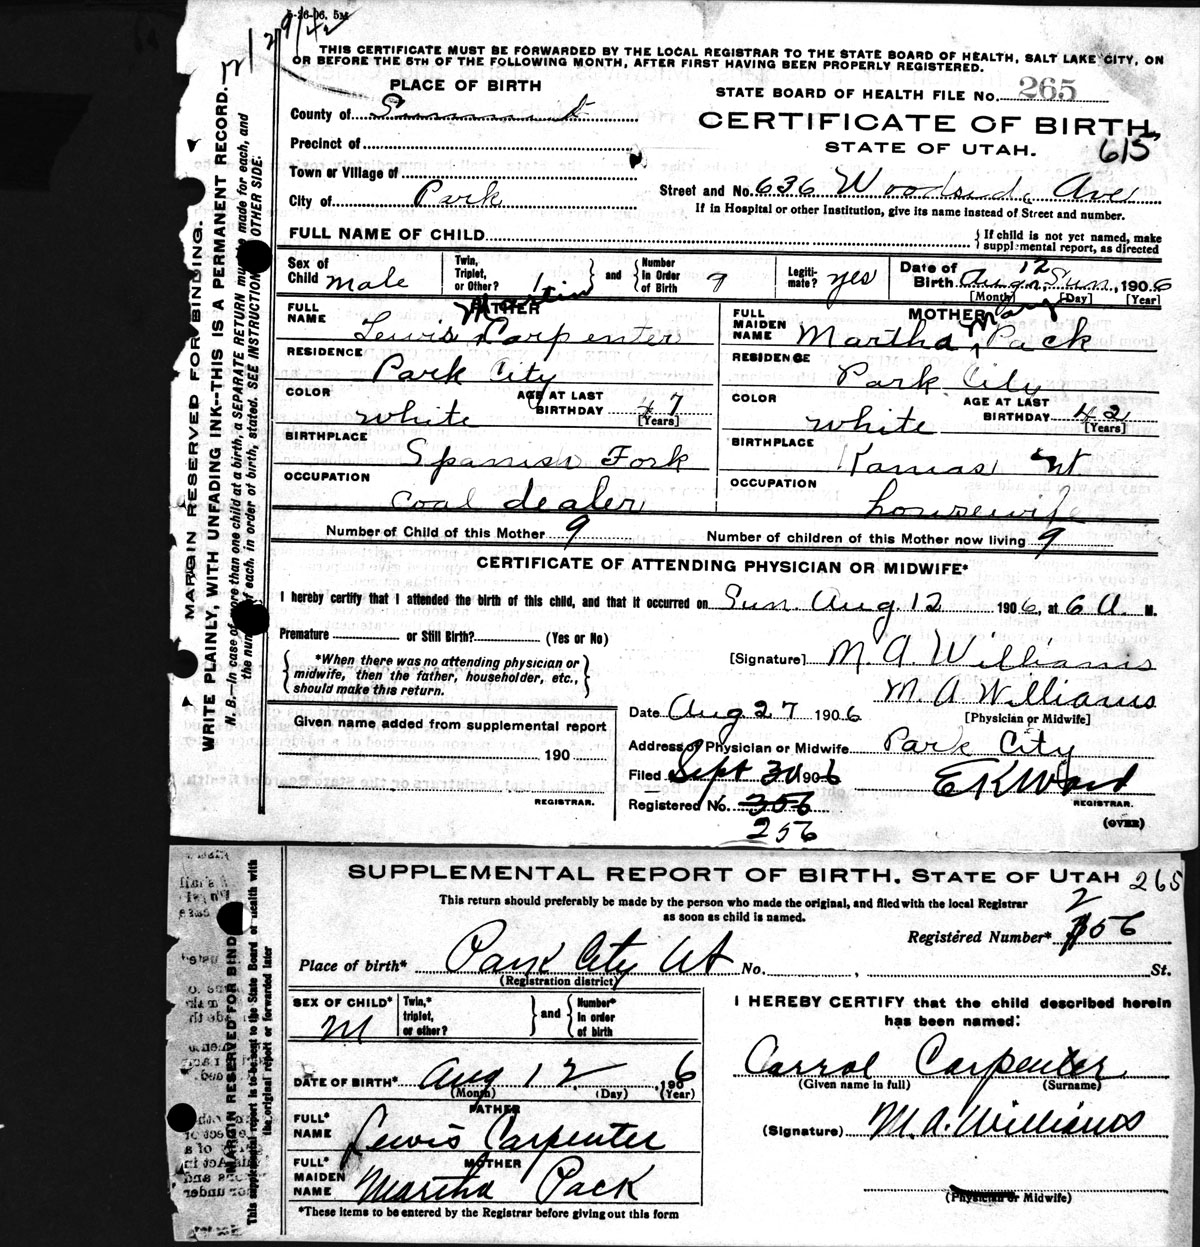 5-26-06. 5M
12/9/42
THIS CERTIFICATE MUST BE FORWARDED BY THE LOCAL REGISTRAR TO THE STATE BOARD OF HEALTH, SALT LAKE CITY, ON
OR BEFORE THE 5TH OF THE FOLLOWING MONTH, AFTER FIRST HAVING BEEN PROPERLY REGISTERED.
PLACE OF BIRTH
STATE BOARD OF HEALTH FILE No. 265
County of Summit
CERTIFICATE OF BIRTH,
Precinct of
STATE OF UTAH. 615
Town or Village of
Street and No. 636 Woodside Ave
City of Park
If in Hospital or other Institution, give its name instead of Street and number.
FULL NAME OF CHILD
{If child is not yet named, make supplemental report, as directed
Sex of Child male
Twin, Triplet, or Other? 1 } and { Number in Order of Birth 9
Legitimate? yes
Date of Birth Aug. 12 Sun, 1906
[Month] [Day] [Year]
FATHER
FULL NAME Lewis Martin Carpenter
MOTHER
FULL MAIDEN NAME Martha Mary Pack
RESIDENCE Park City
RESIDENCE Park City
COLOR white AGE AT LAST BIRTHDAY 47 [Years]
COLOR white AGE AT LAST BIRTHDAY 42 [Years]
BIRTHPLACE Spanish Fork
BIRTHPLACE Kamas Ut
OCCUPATION coal dealer
OCCUPATION housewife
Number of Child of this Mother 9 Number of children of this Mother now living 9
CERTIFICATE OF ATTENDING PHYSICIAN OR MIDWIFE*
I hereby certify that I attended the birth of this child, and that it occurred on Sun. Aug 12 1906, at 6 A. M.
Premature or Still Birth? (Yes or No)
{*When there was no attending physician or midwife, then the father, householder, etc., should make this return.}
[Signature] M. A. Williams
M A Williams
[Physician or Midwife]
Date Aug 27 1906
Given name added from supplemental report
190
REGISTRAR.
Address of Physician or Midwife Park City
Filed Sept 30 1906 E K Ward
REGISTRAR.
Registered No. 356
256
(OVER)
MARGIN RESERVED FOR BINDING.
WRITE PLAINLY, WITH UNFADING INK--THIS IS A PERMANENT RECORD.
N. B.--In case of more than one child at a birth, a SEPARATE RETURN must be made for each, and
the number of each, in order of birth, stated. SEE INSTRUCTIONS OTHER SIDE.
SUPPLEMENTAL REPORT OF BIRTH. STATE OF UTAH 265
This return should preferably be made by the person who made the original, and filed with the local Registrar
as soon as child is named.
Registered Number* 256
Place of birth* Park City Ut No. , St.
(Registration district)
SEX OF CHILD* M
Twin,* triplet, or other? } and { Number* in order of birth
I HEREBY CERTIFY that the child described herein
has been named:
Carrol Carpenter
(Given name in full) (Surname)
DATE OF BIRTH* Aug 12, 1906
(Month) (Day) (Year)
FATHER
FULL* NAME Lewis Carpenter
(Signature) M. A. Williams
MOTHER
FULL* MAIDEN NAME Martha Pack
(Physician or Midwife)
*These items to be entered by the Registrar before giving out this form
MARGIN RESERVED FOR BIND
This supplemental report is to be sent to the State Board of Health with
the original report or forwarded later